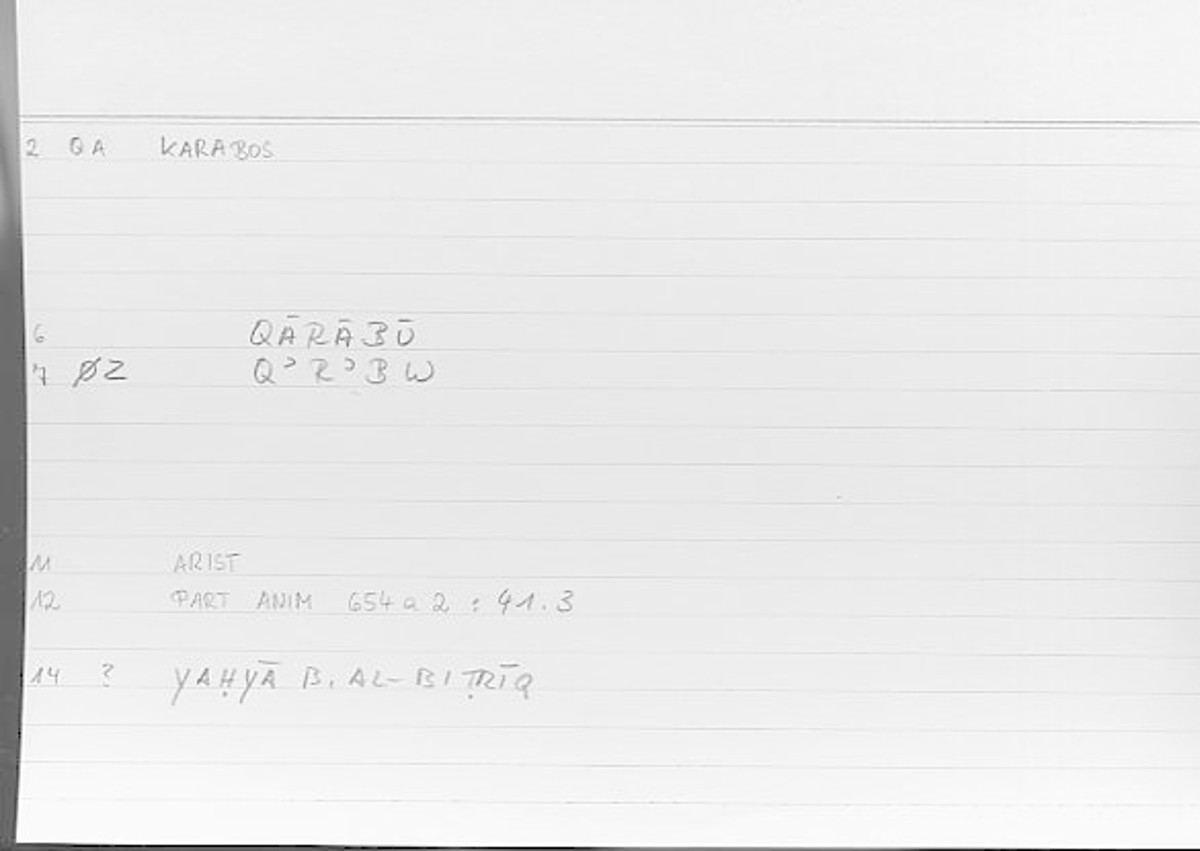 2 QA KARABOS
6 QĀRĀBŪ
7 ØZ QʾRʾBW
11 ARIST
12 PART ANIM 654 a 2 : 41.3
14 ? YAḤYĀ B. AL-BIṬRĪQ